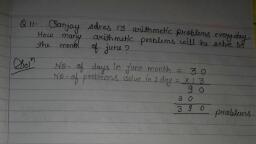 Q 11. Sanjay solves 13 arithmetic problems everyday.
How many arithmetic problems will he solve in
the month of june?
Solⁿ
No. of days in june month = 30
No. of problems solve in 1 day = x 13
90
30
390 problems